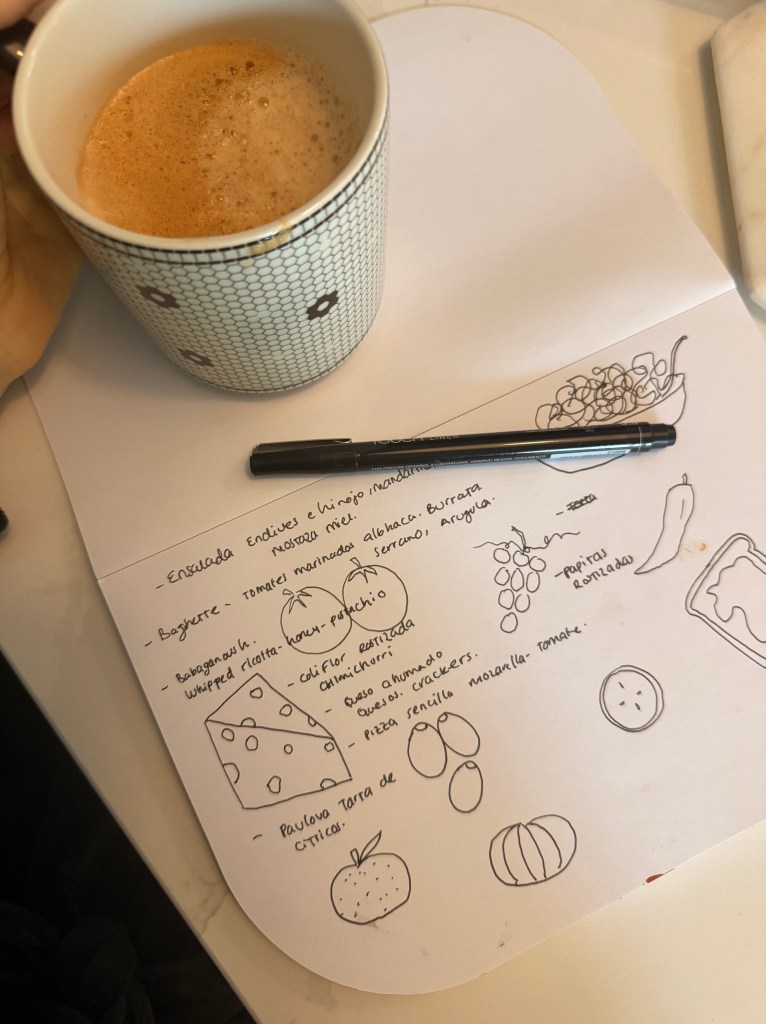 - Ensalada Endives e hinojo, mandarina
mostaza miel.
- Baghette - Tomates marinados albhaca. Burrata
serrano, Arugula.
- Babaganoush.
Whipped ricotta - honey - pistachio
- coliflor Rostizada
chimichurri
- Queso ahumado
Quesos. crackers.
- Pizza sencilla mozarella - tomate.
- Pavlova Tarta de
citricos.
- papitas
Rostizadas
TOUCH